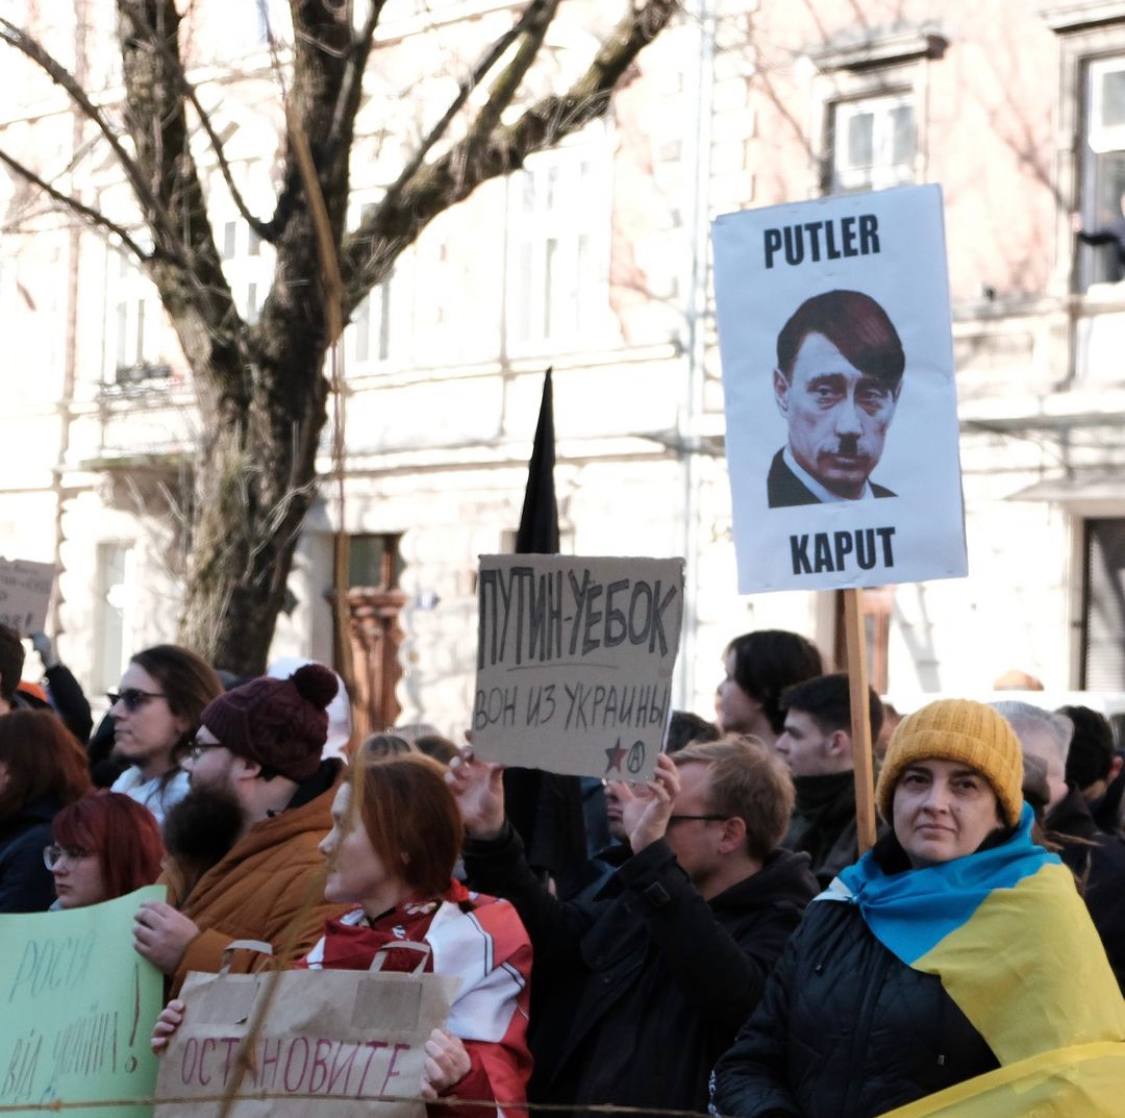 PUTLER
KAPUT
ПУТИН-УЕБОК
ВОН ИЗ УКРАИНЫ
РОСІЯ
ВІД УКРАЇНИ!
ОСТАНОВИТЕ